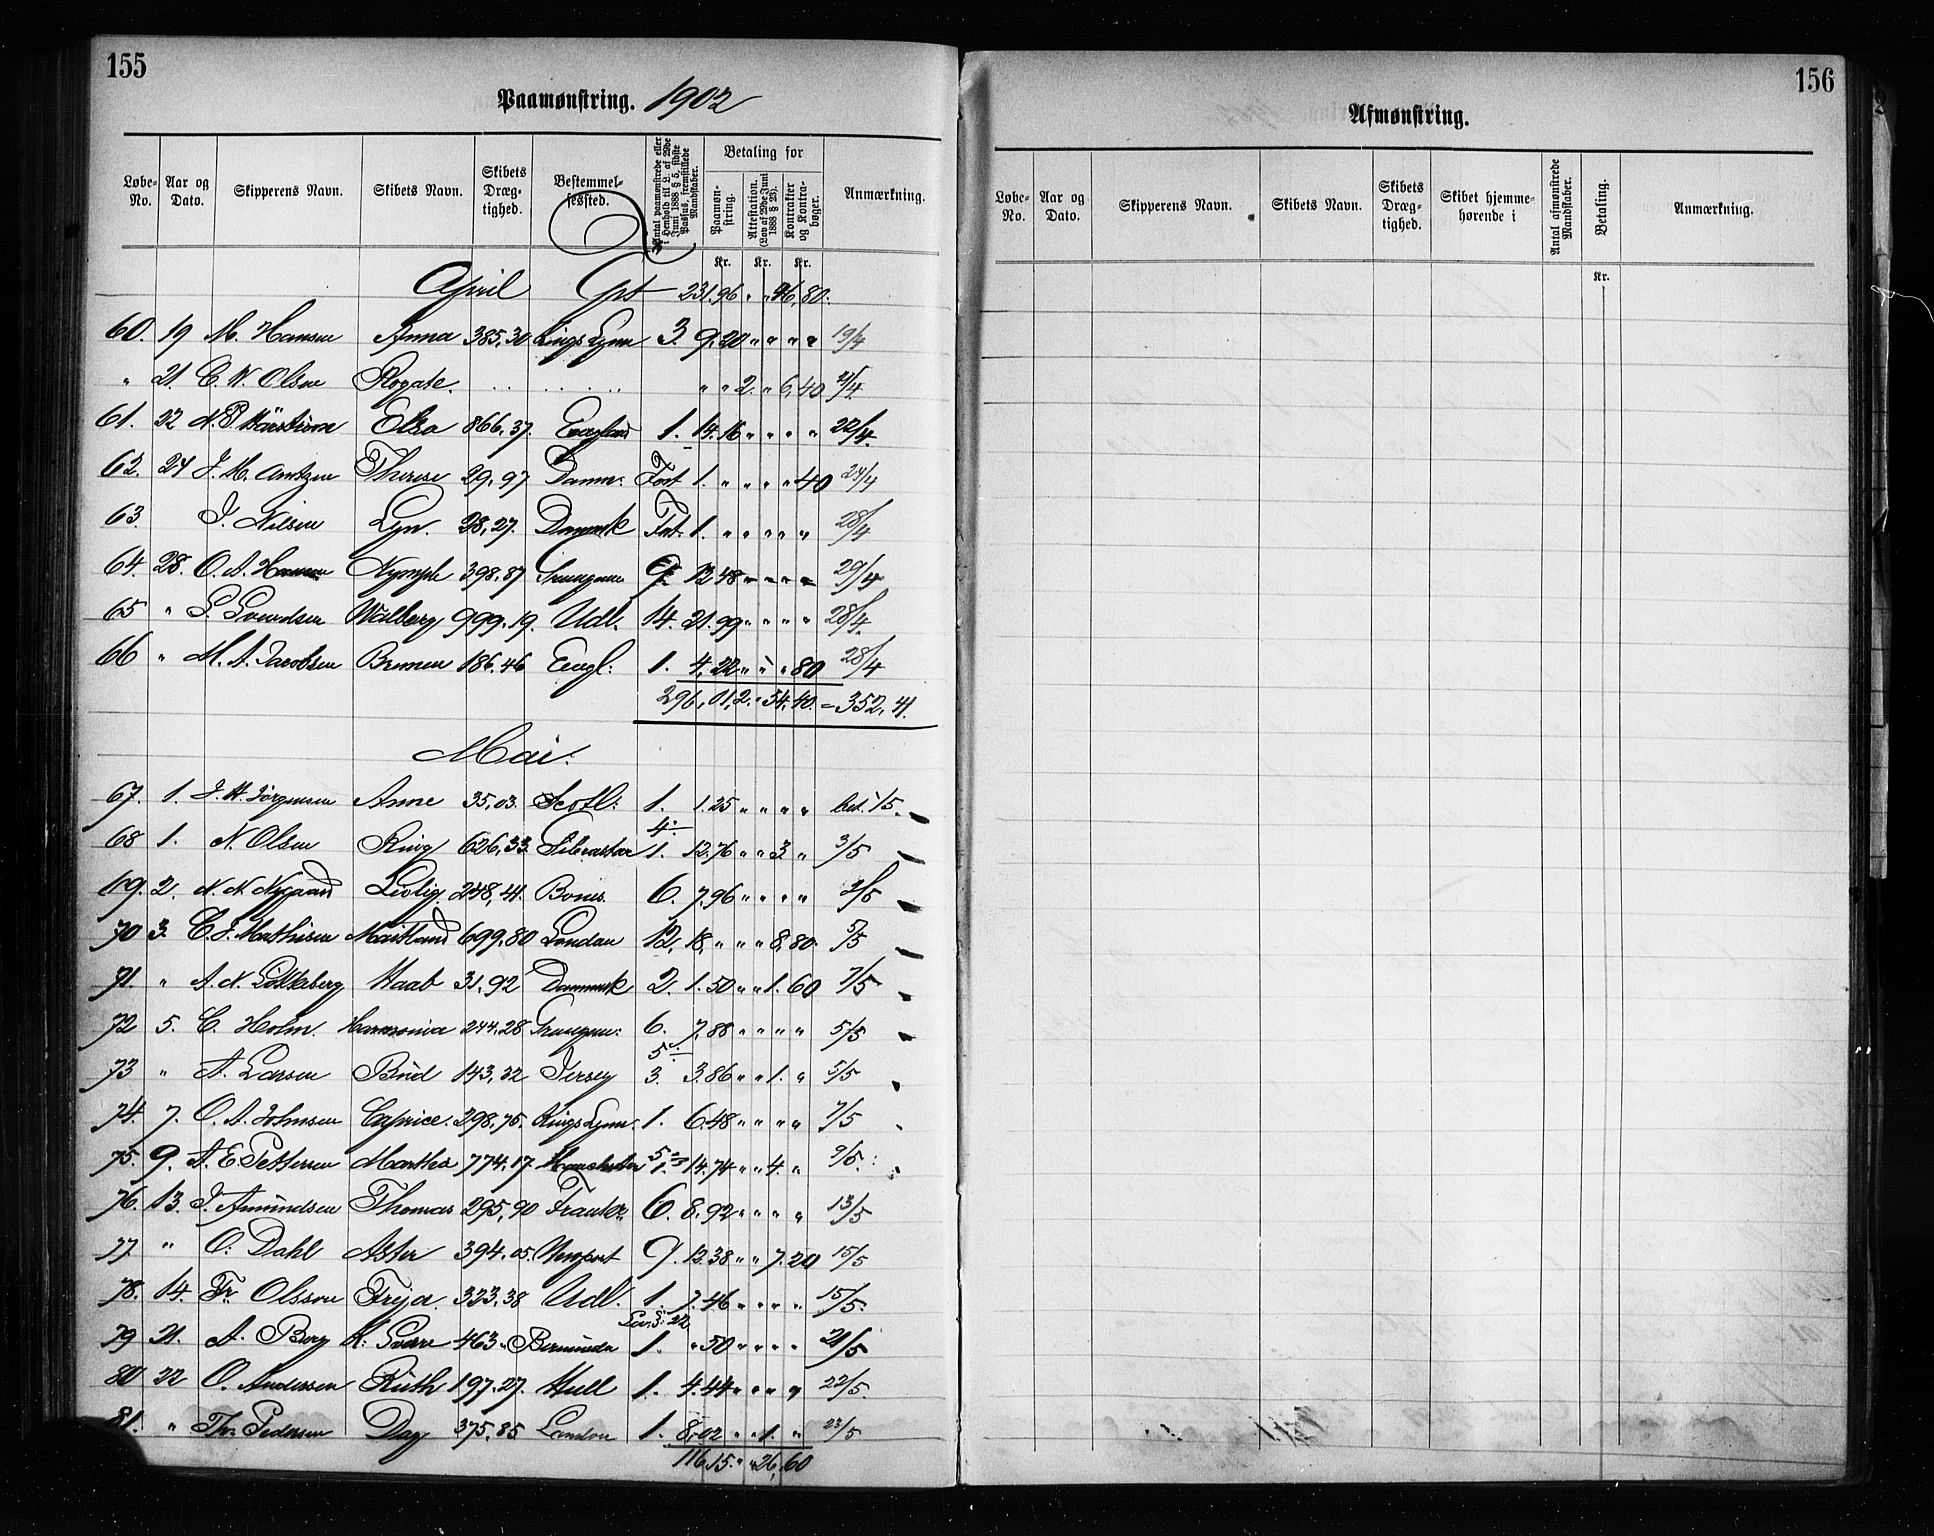 155
Paamønstring. 1902
Løbe-No. Aar og Dato. Skipperens Navn. Skibets Navn. Skibets Dræg-tighed. Bestemmel-sessted. Antal paamønstrede eller i Henhold til L. af 29de Juni 1888 § 5, sidste Passus, fremstillede Mandskaber. Betaling for Paamøn-string. Attestation. (Lov af 29de Juni 1888 § 23). Kontrakter og Kontra-bøger. Anmærkning.
Kr. Kr. Kr.
April Gpt 231.96 " " 46,80.
60. 19 M. Hansen Anna 385,30 Kings Lynn 3. 9.20 " " " " 19/4
" 21. C. W. Olsen Rogate. " " 2. " 6,40 21/4
61. 22 N. P. Elsa 866,37. England 1. 14.16 " " " " 22/4.
62. 24 J. M. Arntzen Therese 29,97 Danm: Fort 1. " " " " 40 24/4
63. J. Nilsen Lyn. 28,27. Danmark Fort. 1. " " " " " 28/4
64. 28. O. A. Hansen Nymph 398,87 9. 12.48 " " " " 29/4
65 " S. Svendsen Walberg 999,19. Udl. 14. 21.99 " " " " 28/4.
66 " M. A. Jacobsen Bremen 186.46 Engl: 1. 4,22 " " " 80 28/4
296,01, 2. " 54,40. = 352,41.
Mai.
67. 1. J. H. Jörgensen Anne 35,03. Scotl: 1. 1.25 " " " " bet. 1/5.
68 1. N. Olsen Ring 626,33. 4 1. 12.76 " " 3. " 3/5
69. 2. N. N. Nygaard Livlig. 248,41. Boness. 6. 7.96 " " " " 2/5
70 3. C. J. Mathisen Maitland 699,80 London 12, 18, " " " 8,80. 5/5
71. " A. N. Haab 31,92 Danmark 2. 1.50 " " 1. 60 7/5
72 5. C. Holm. Harmonia 244.28 6. 7,88 " " " " 5/5
73 " A. Larsen Bud 143,32 Jersey 5 3. 3.86 " " 1. " 5/5
74. 7. O. A. Johnsen Caprice. 298,75. Kings Lynn. 1. 6.48 " " " " 7/5
75. 9. A. E. Pettersen Martha 774.17. Manchester 5 1. 14.74 " " 4. " 9/5.
76. 13. J. Amundsen Thomas 295,90 Frankr. 6. 8.92 " " " " 13/5
77. " O. Dahl Aster 394.05. Newport 9. 12.38 " " 7.20 15/5
78. 14. Fr. Olsson Freja. 323,38 Udl. 1. 7.46 " " " " 15/5.
Lov § 22
79 21. A. Berg K. Svare 463 " Bermuda 1. " 50 " " " " 21/5
80 22 O. Andersen Ruth 197.27. Hull 1. 4.44 " " " " 22/5.
81. " Th. Pedersen Dag 375,85 London 1. 8,02 " " 1. " 23/5
116.15. " " 26,60
156
Afmønstring.
Løbe-No. Aar og Dato. Skipperens Navn. Skibets Navn. Skibets Dræg-tighed. Skibet hjemme-hørende i Antal afmønstrede Mandskaber. Betaling. Anmærkning.
Kr.